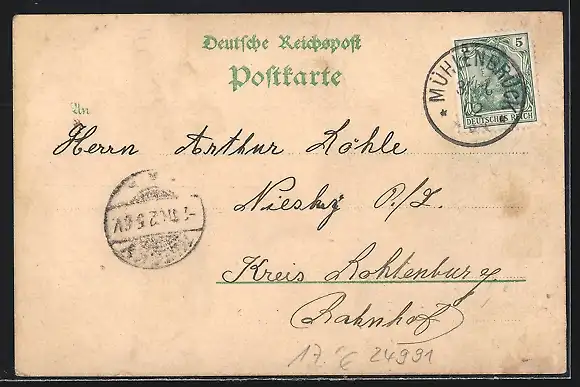 Deutsche Reichspost
Postkarte
5
DEUTSCHES REICH
* MÜHLENBRÜCK *
An
Herrn Arthur Köhle
Niesky O./L.
Kreis Rothenburg
Bahnhof
17. € 24991